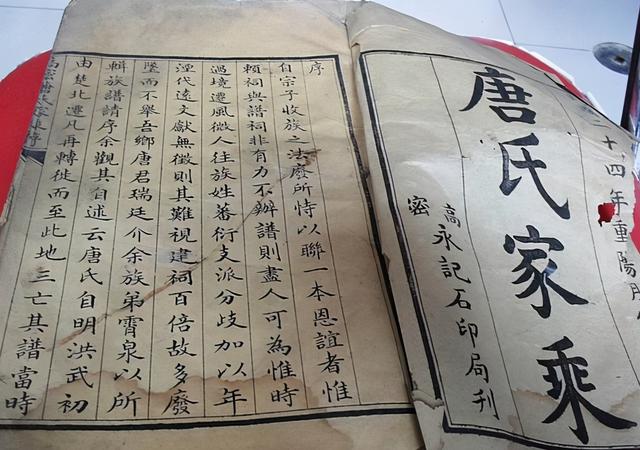 十四年重陽
唐氏家乘
高密永記石印局刊
序
自宗子收族之法廢所恃以聯一本恩誼者惟
賴祠與譜祠非有力不辦譜則盡人可為惟時
過境遷風微人往族姓蕃衍支派分歧加以年
湮代遠文獻無徵則其難視建祠百倍故多廢
墜而不舉吾鄉唐君瑞廷介余族弟霄泉以所
輯族譜請序余觀其自述云唐氏自明洪武初
由楚北遷凡再轉徙而至此地三亡其譜當時